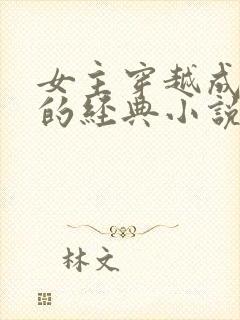 女主穿越成
的经典小说
林文